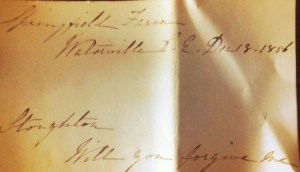 Springfield Farm
Waterville C. E. Dec 18. 1856
Stoughton
Will you forgive me